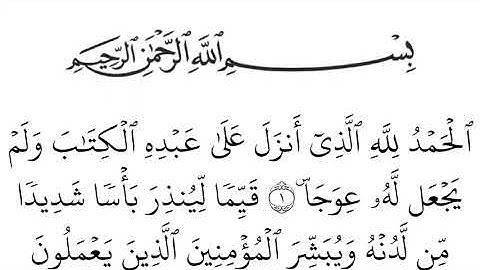 بِسْمِ ٱللَّهِ ٱلرَّحْمَٰنِ ٱلرَّحِيمِ
ٱلْحَمْدُ لِلَّهِ ٱلَّذِىٓ أَنزَلَ عَلَىٰ عَبْدِهِ ٱلْكِتَٰبَ وَلَمْ
يَجْعَل لَّهُۥ عِوَجَاۜ ۝١ قَيِّمًا لِّيُنذِرَ بَأْسًا شَدِيدًا
مِّن لَّدُنْهُ وَيُبَشِّرَ ٱلْمُؤْمِنِينَ ٱلَّذِينَ يَعْمَلُونَ